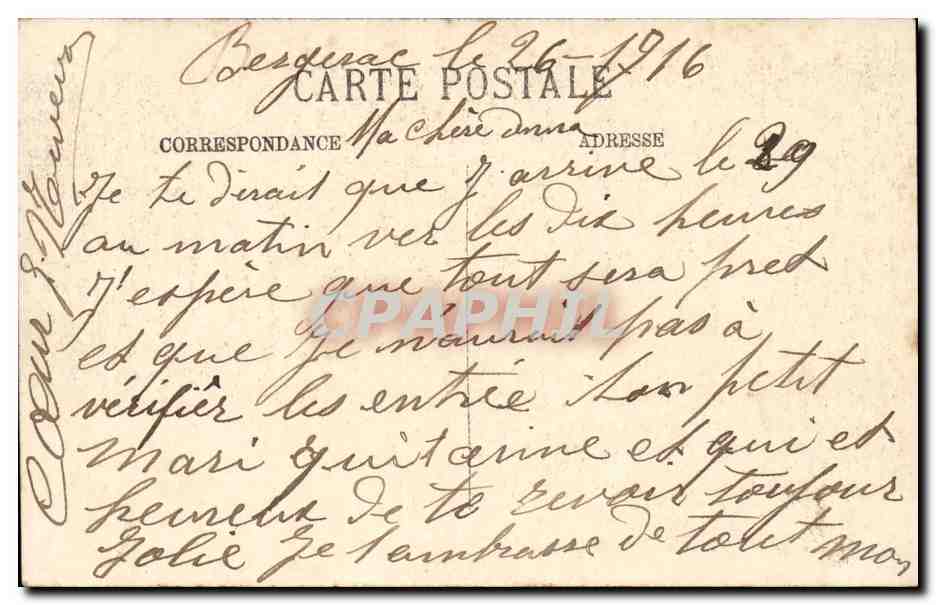 Bergerac le 26-1916
CARTE POSTALE
CORRESPONDANCE Ma chère Anna ADRESSE
Je te dirait que J. arrive le 29
au matin ver les dix heures
J'espère que tout sera pret
et que Je n'aurait pas à
vérifiêr les entrée ton petit
mari qui t'aime et qui et
heureux de te revoir toujour
Jolie Je t'ambrasse de tout mon
Cœur J.
CPAPHIL